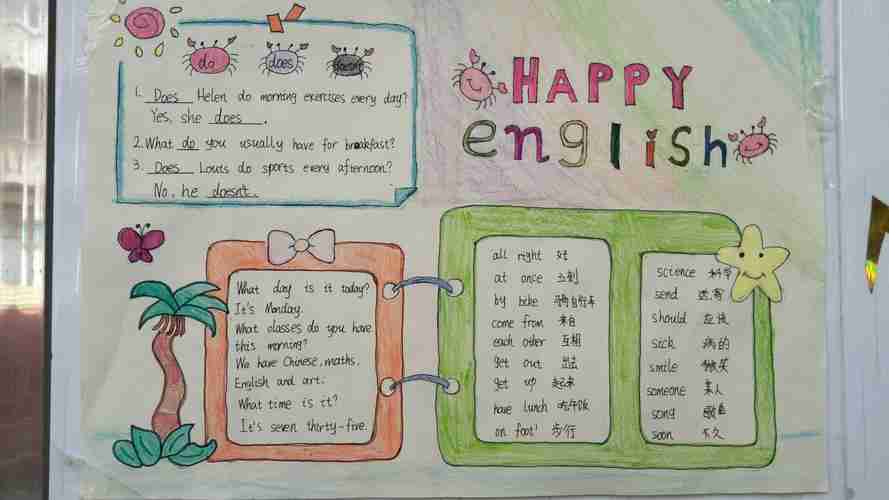 do does doesn't
HAPPY
english
1. Does Helen do morning exercises every day?
Yes, she does.
2. What do you usually have for breakfast?
3. Does Louts do sports every afternoon?
No, he doesn't.
What day is it today?
It's Monday.
What classes do you have
this morning?
We have Chinese, maths,
English and art.
What time is it?
It's seven thirty-five.
all right 好
at once 立刻
by bike 骑自行车
come from 来自
each other 互相
get out 出去
get up 起来
have lunch 吃午饭
on foot 步行
science 科学
send 送,寄
should 应该
sick 病的
smile 微笑
someone 某人
song 歌曲
soon 不久